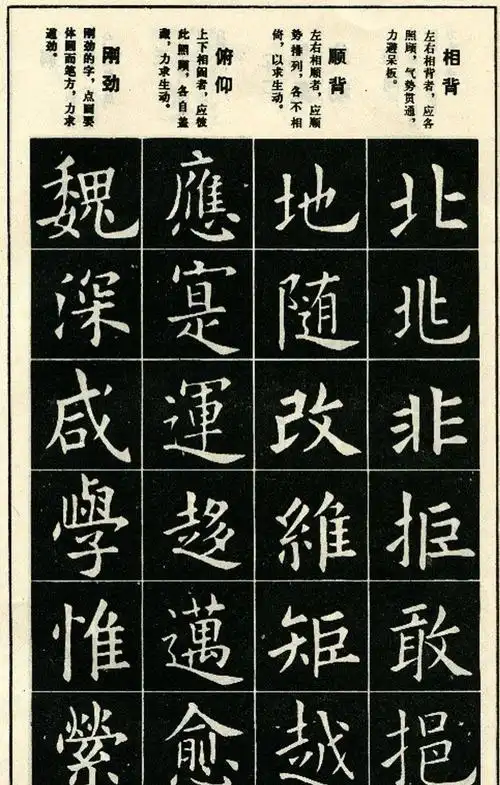 相背
左右相背者，应各
照顾，气势贯通，
力避呆板。
北兆非拒敢挹
顺背
左右相顺者，应顺
势排列，各不相
倚，以求生动。
地随改維矩越
俯仰
上下相者，应彼
此照顾，各自盖
藏，力求生动。
應寔運趍邁愈
刚劲
刚劲的字，点画要
体圆而笔方，力求
遒劲。
魏深咸學惟縈